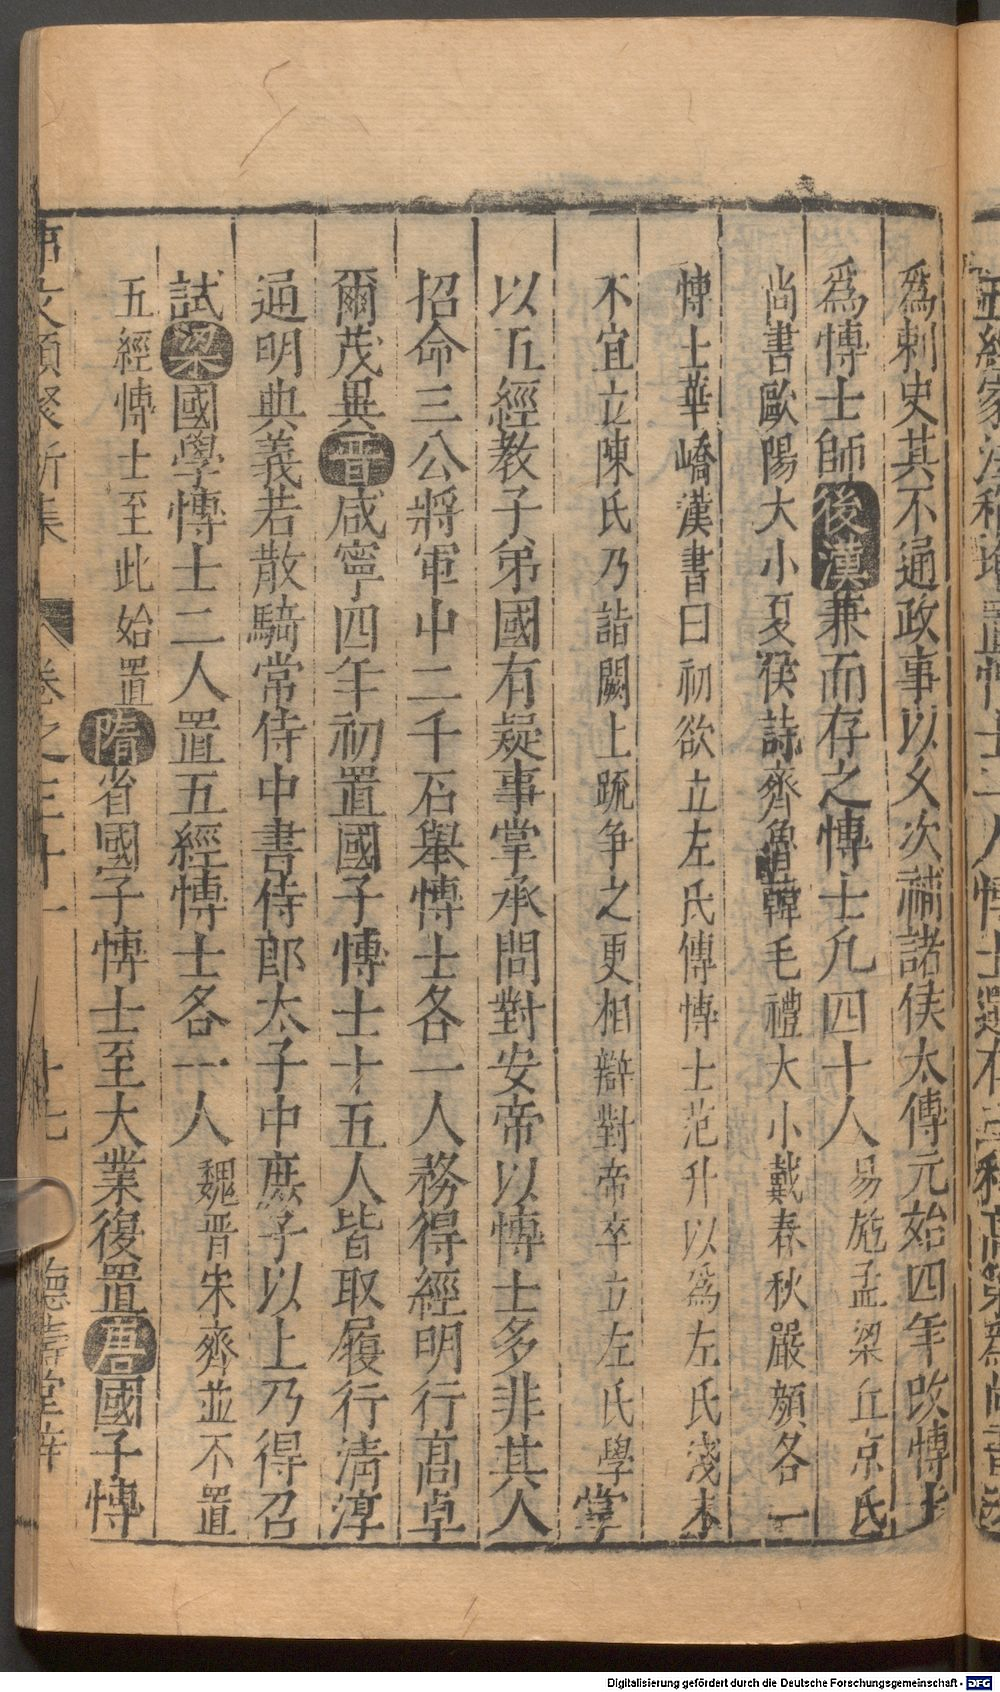 爲刺史其不通政事以久次補諸侯太傅元始四年改博士
爲博士師後漢兼而存之博士凡四十人易施孟梁丘京氏
尚書歐陽大小夏侯詩齊魯韓毛禮大小戴春秋嚴顔各一
博士華嶠漢書曰初欲立左氏傳博士范升以爲左氏淺末
不宜立陳氏乃詣闕上疏争之更相辯對帝卒立左氏學掌
以五經教子弟國有疑事掌承問對安帝以博士多非其人
招命三公將軍中二千石舉博士各一人務得經明行高卓
爾茂異晋咸寧四年初置國子博士十五人皆取履行清淳
通明典義若散騎常侍中書侍郎太子中庶子以上乃得召
試梁國學博士二人置五經博士各一人魏晋宋齊並不置
五經博士至此始置隋省國子博士至大業復置唐國子博
事文類聚新集 卷之三十一 十七 德壽堂梓
Digitalisierung gefördert durch die Deutsche Forschungsgemeinschaft - DFG